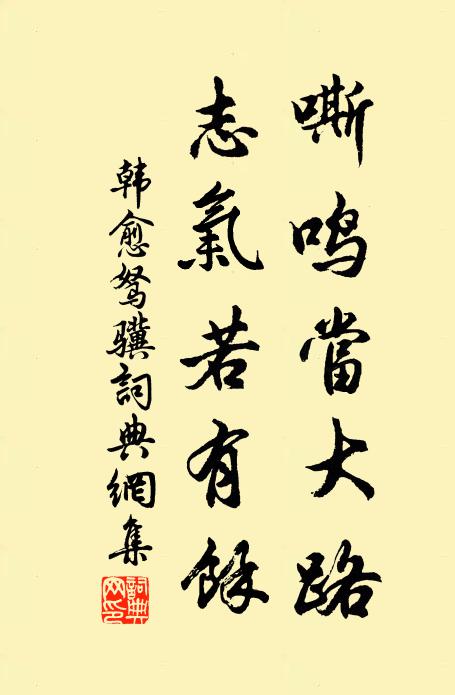 嘶鸣當大路
志氣若有餘
韩愈驽骥詞典網集
詞典网印